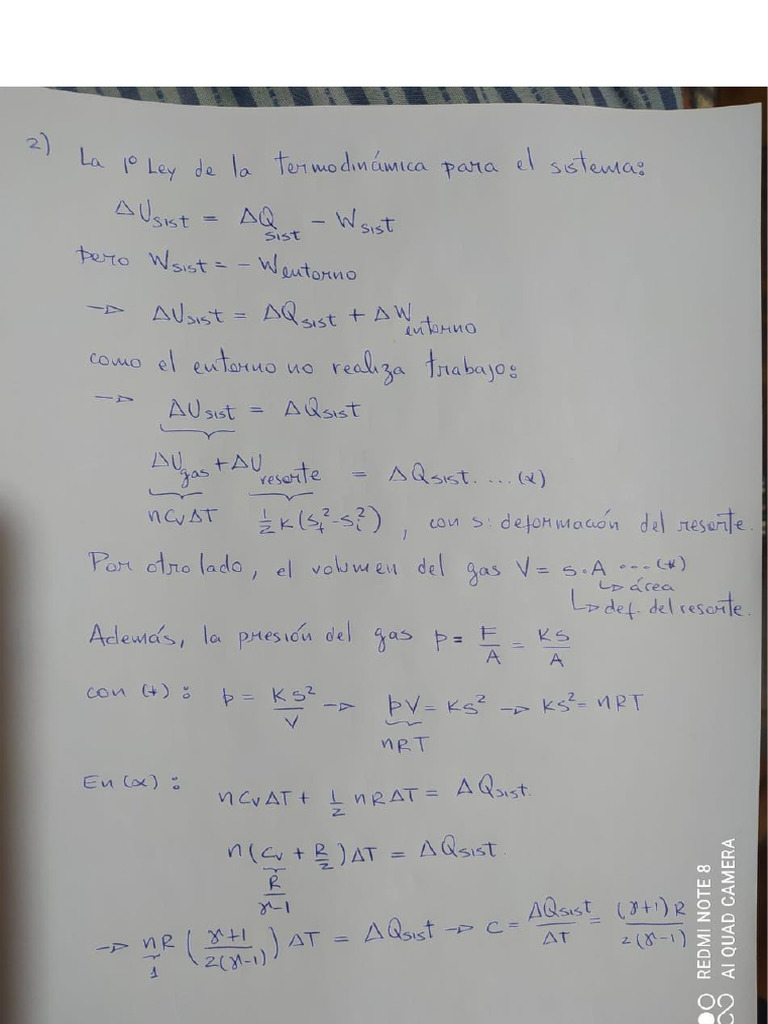 2) La 1º Ley de la termodinámica para el sistema:
ΔU_sist = ΔQ_sist - W_sist
pero W_sist = - W_entorno
→ ΔU_sist = ΔQ_sist + ΔW_entorno
como el entorno no realiza trabajo:
→ ΔU_sist = ΔQ_sist
ΔU_gas + ΔU_resorte = ΔQ_sist. ...(α)
nC_vΔT ½K(S_f² - S_i²), con s: deformación del resorte.
Por otro lado, el volumen del gas V = s.A ...(*)
↳ área
↳ def. del resorte.
Además, la presión del gas p = F/A = KS/A
con (*): p = KS²/V → pV = KS² → KS² = nRT
nRT
En (α): nC_vΔT + ½ nRΔT = ΔQ_sist.
n(C_v + R/2)ΔT = ΔQ_sist.
R/(γ-1)
→ nR ((γ+1)/(2(γ-1))) ΔT = ΔQ_sist → C = ΔQ_sist/ΔT = (γ+1)R/(2(γ-1))
1
REDMI NOTE 8
AI QUAD CAMERA